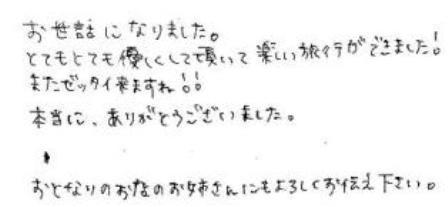 お世話になりました。
とてもとても優しくして頂いて楽しい旅行ができました！
またゼッタイ来ますね！！
本当に、ありがとうございました。
おとなりのお店のお姉さんにもよろしくお伝え下さい。